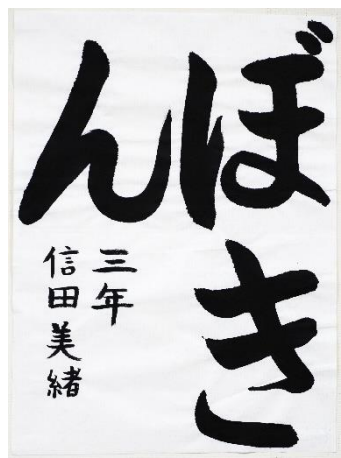 ぼき
ん
三年
信田美緒